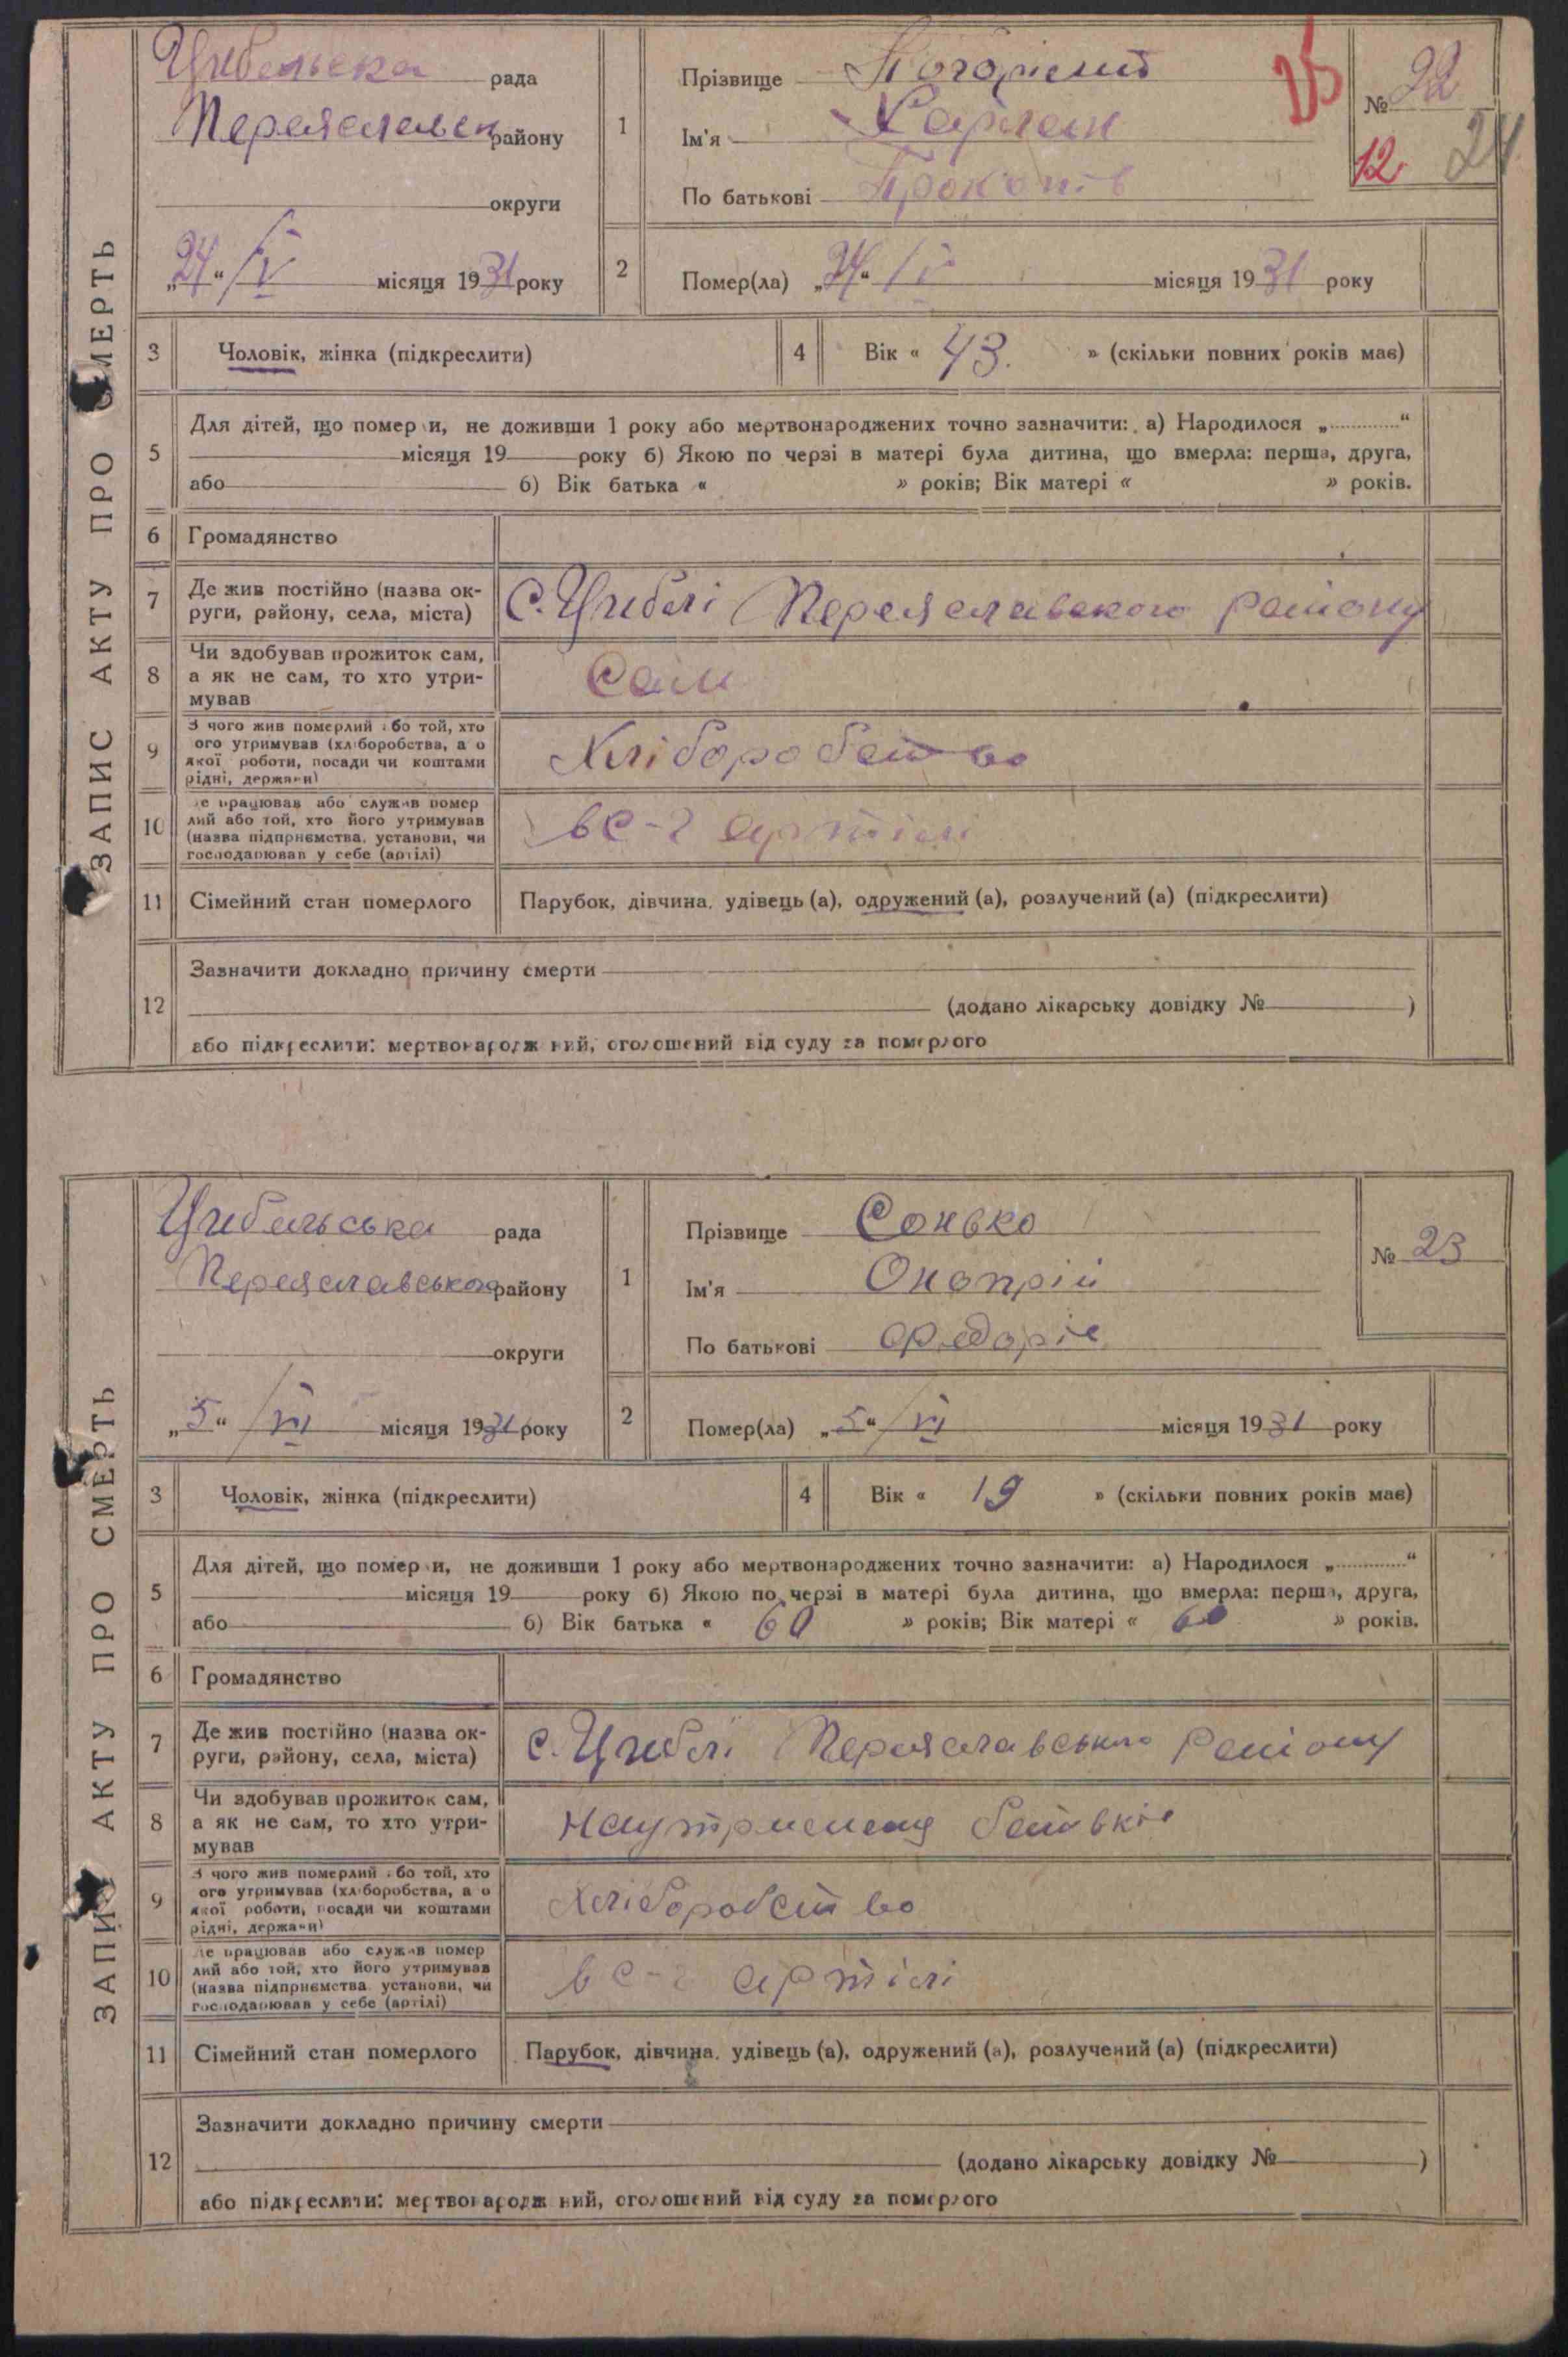 ЗАПИС АКТУ ПРО СМЕРТЬ
Цибельска рада
Переяславськ району
округи
„24“ IV місяця 1931 року
1
Прізвище Погорілий
Ім'я Харлам
По батькові Прокопів
№ 22
25
12
24
2
Помер(ла) „24“ IV місяця 1931 року
3
Чоловік, жінка (підкреслити)
4
Вік « 43. » (скільки повних років має)
5
Для дітей, що померли, не доживши 1 року або мертвонароджених точно зазначити: а) Народилося „ “
місяця 19 року б) Якою по черзі в матері була дитина, що вмерла: перша, друга,
або б) Вік батька « » років; Вік матері « » років.
6
Громадянство
7
Де жив постійно (назва ок-
руги, району, села, міста)
с. Циблі Переяславського району
8
Чи здобував прожиток сам,
а як не сам, то хто утри-
мував
Сам
9
З чого жив померлий або той, хто
ого утримував (хліборобства, а о
якої роботи, посади чи коштами
рідні, держави)
Хліборобство
10
е працював або служив помер
лий або той, хто його утримував
(назва підприємства, установи, чи
господарював у себе (артілі)
в с-г артілі
11
Сімейний стан померлого
Парубок, дівчина, удівець (а), одружений (а), розлучений (а) (підкреслити)
12
Зазначити докладно причину смерти
(додано лікарську довідку № )
або підкреслити: мертвонароджений, оголошений від суду за померлого
ЗАПИС АКТУ ПРО СМЕРТЬ
Цибельська рада
Переяславського району
округи
„5“ VI місяця 1931 року
1
Прізвище Сонько
Ім'я Онопрій
По батькові Федорів
№ 23
2
Помер(ла) „5“ VI місяця 1931 року
3
Чоловік, жінка (підкреслити)
4
Вік « 19 » (скільки повних років має)
5
Для дітей, що померли, не доживши 1 року або мертвонароджених точно зазначити: а) Народилося „ “
місяця 19 року б) Якою по черзі в матері була дитина, що вмерла: перша, друга,
або б) Вік батька « 60 » років; Вік матері « 60 » років.
6
Громадянство
7
Де жив постійно (назва ок-
руги, району, села, міста)
с. Циблі Переяславського району
8
Чи здобував прожиток сам,
а як не сам, то хто утри-
мував
На утриманню батьків
9
З чого жив померлий або той, хто
ого утримував (хліборобства, а о
якої роботи, посади чи коштами
рідні, держави)
Хліборобство
10
е працював або служив помер
лий або той, хто його утримував
(назва підприємства, установи, чи
господарював у себе (артілі)
в с-г артілі
11
Сімейний стан померлого
Парубок, дівчина, удівець (а), одружений (а), розлучений (а) (підкреслити)
12
Зазначити докладно причину смерти
(додано лікарську довідку № )
або підкреслити: мертвонароджений, оголошений від суду за померлого